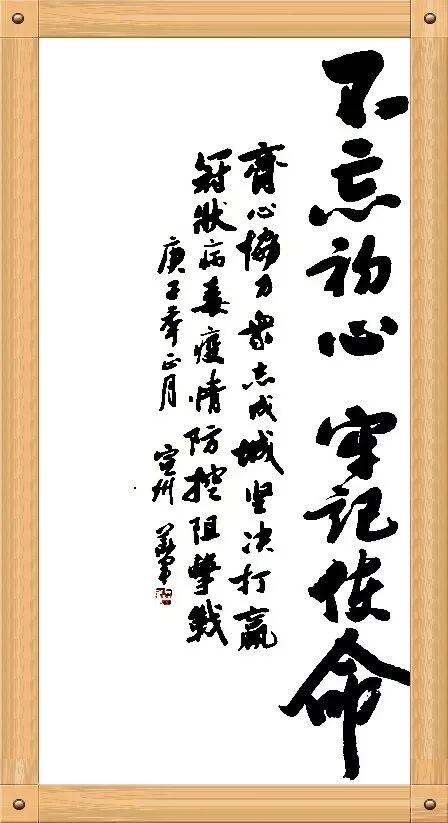 不忘初心 牢记使命
齊心協力衆志成城坚决打赢
冠狀病毒疫情防控阻擊戰
庚子年正月 宣州